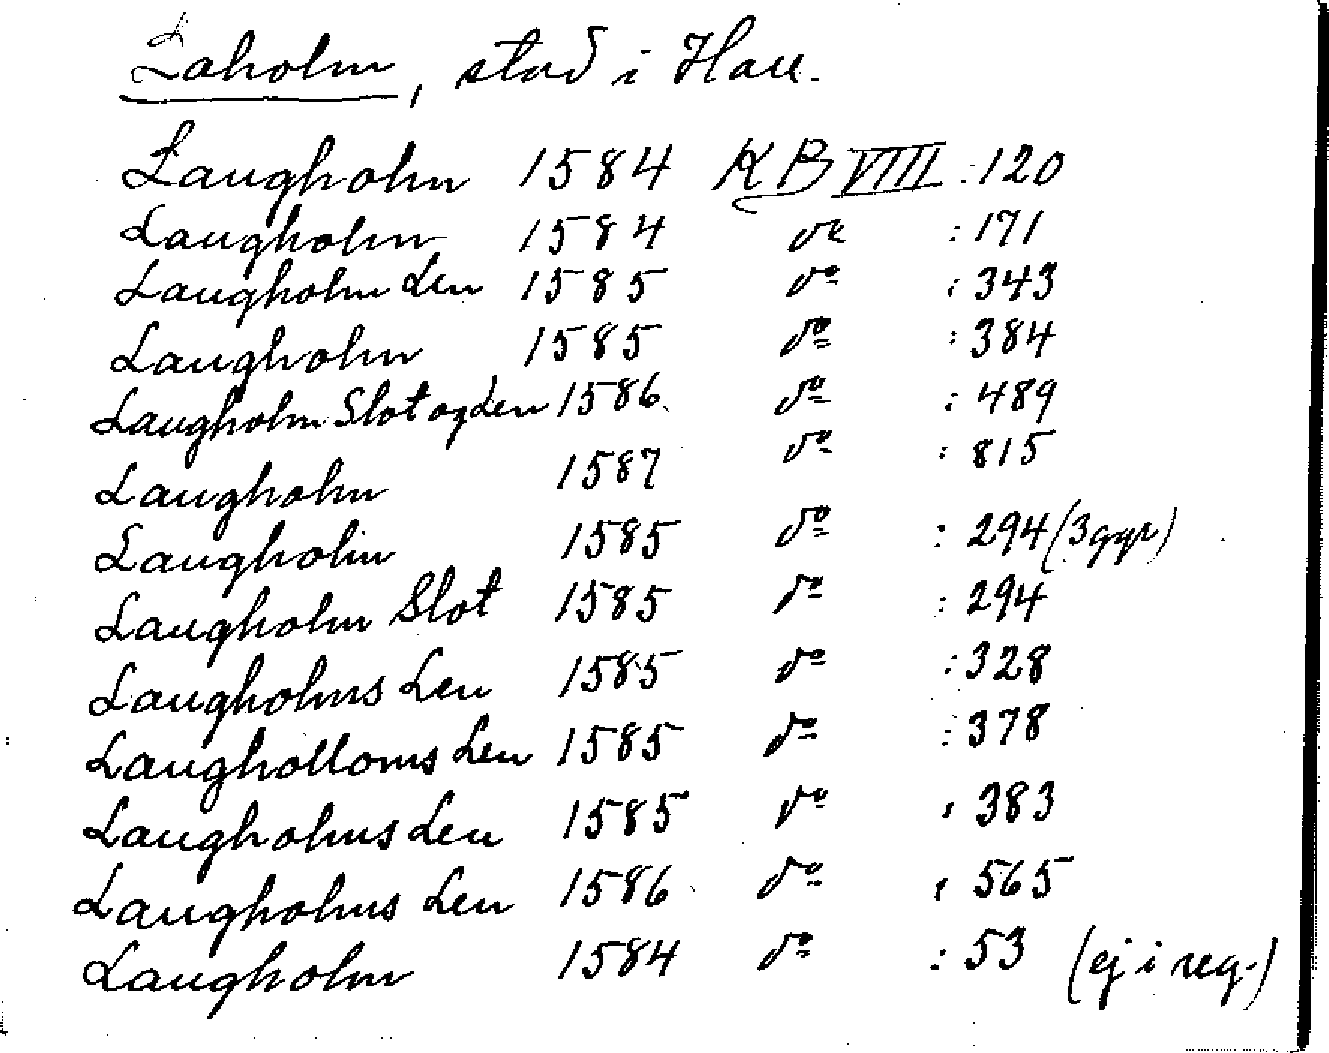 Laholm, stad i Hall.
Laugholm 1584 KB VIII :120
Laugholm 1584 do :171
Laugholm Len 1585 do :343
Laugholm 1585 do :384
Laugholm Slot og Len 1586 do :489
Laugholm 1587 do :815
Laugholm 1585 do :294 (3 ggr)
Laugholm Slot 1585 do :294
Laugholms Len 1585 do :328
Laugholloms Len 1585 do :378
Laugholms Len 1585 do :383
Laugholms Len 1586 do :565
Laugholm 1584 do :53 (ej i reg.)